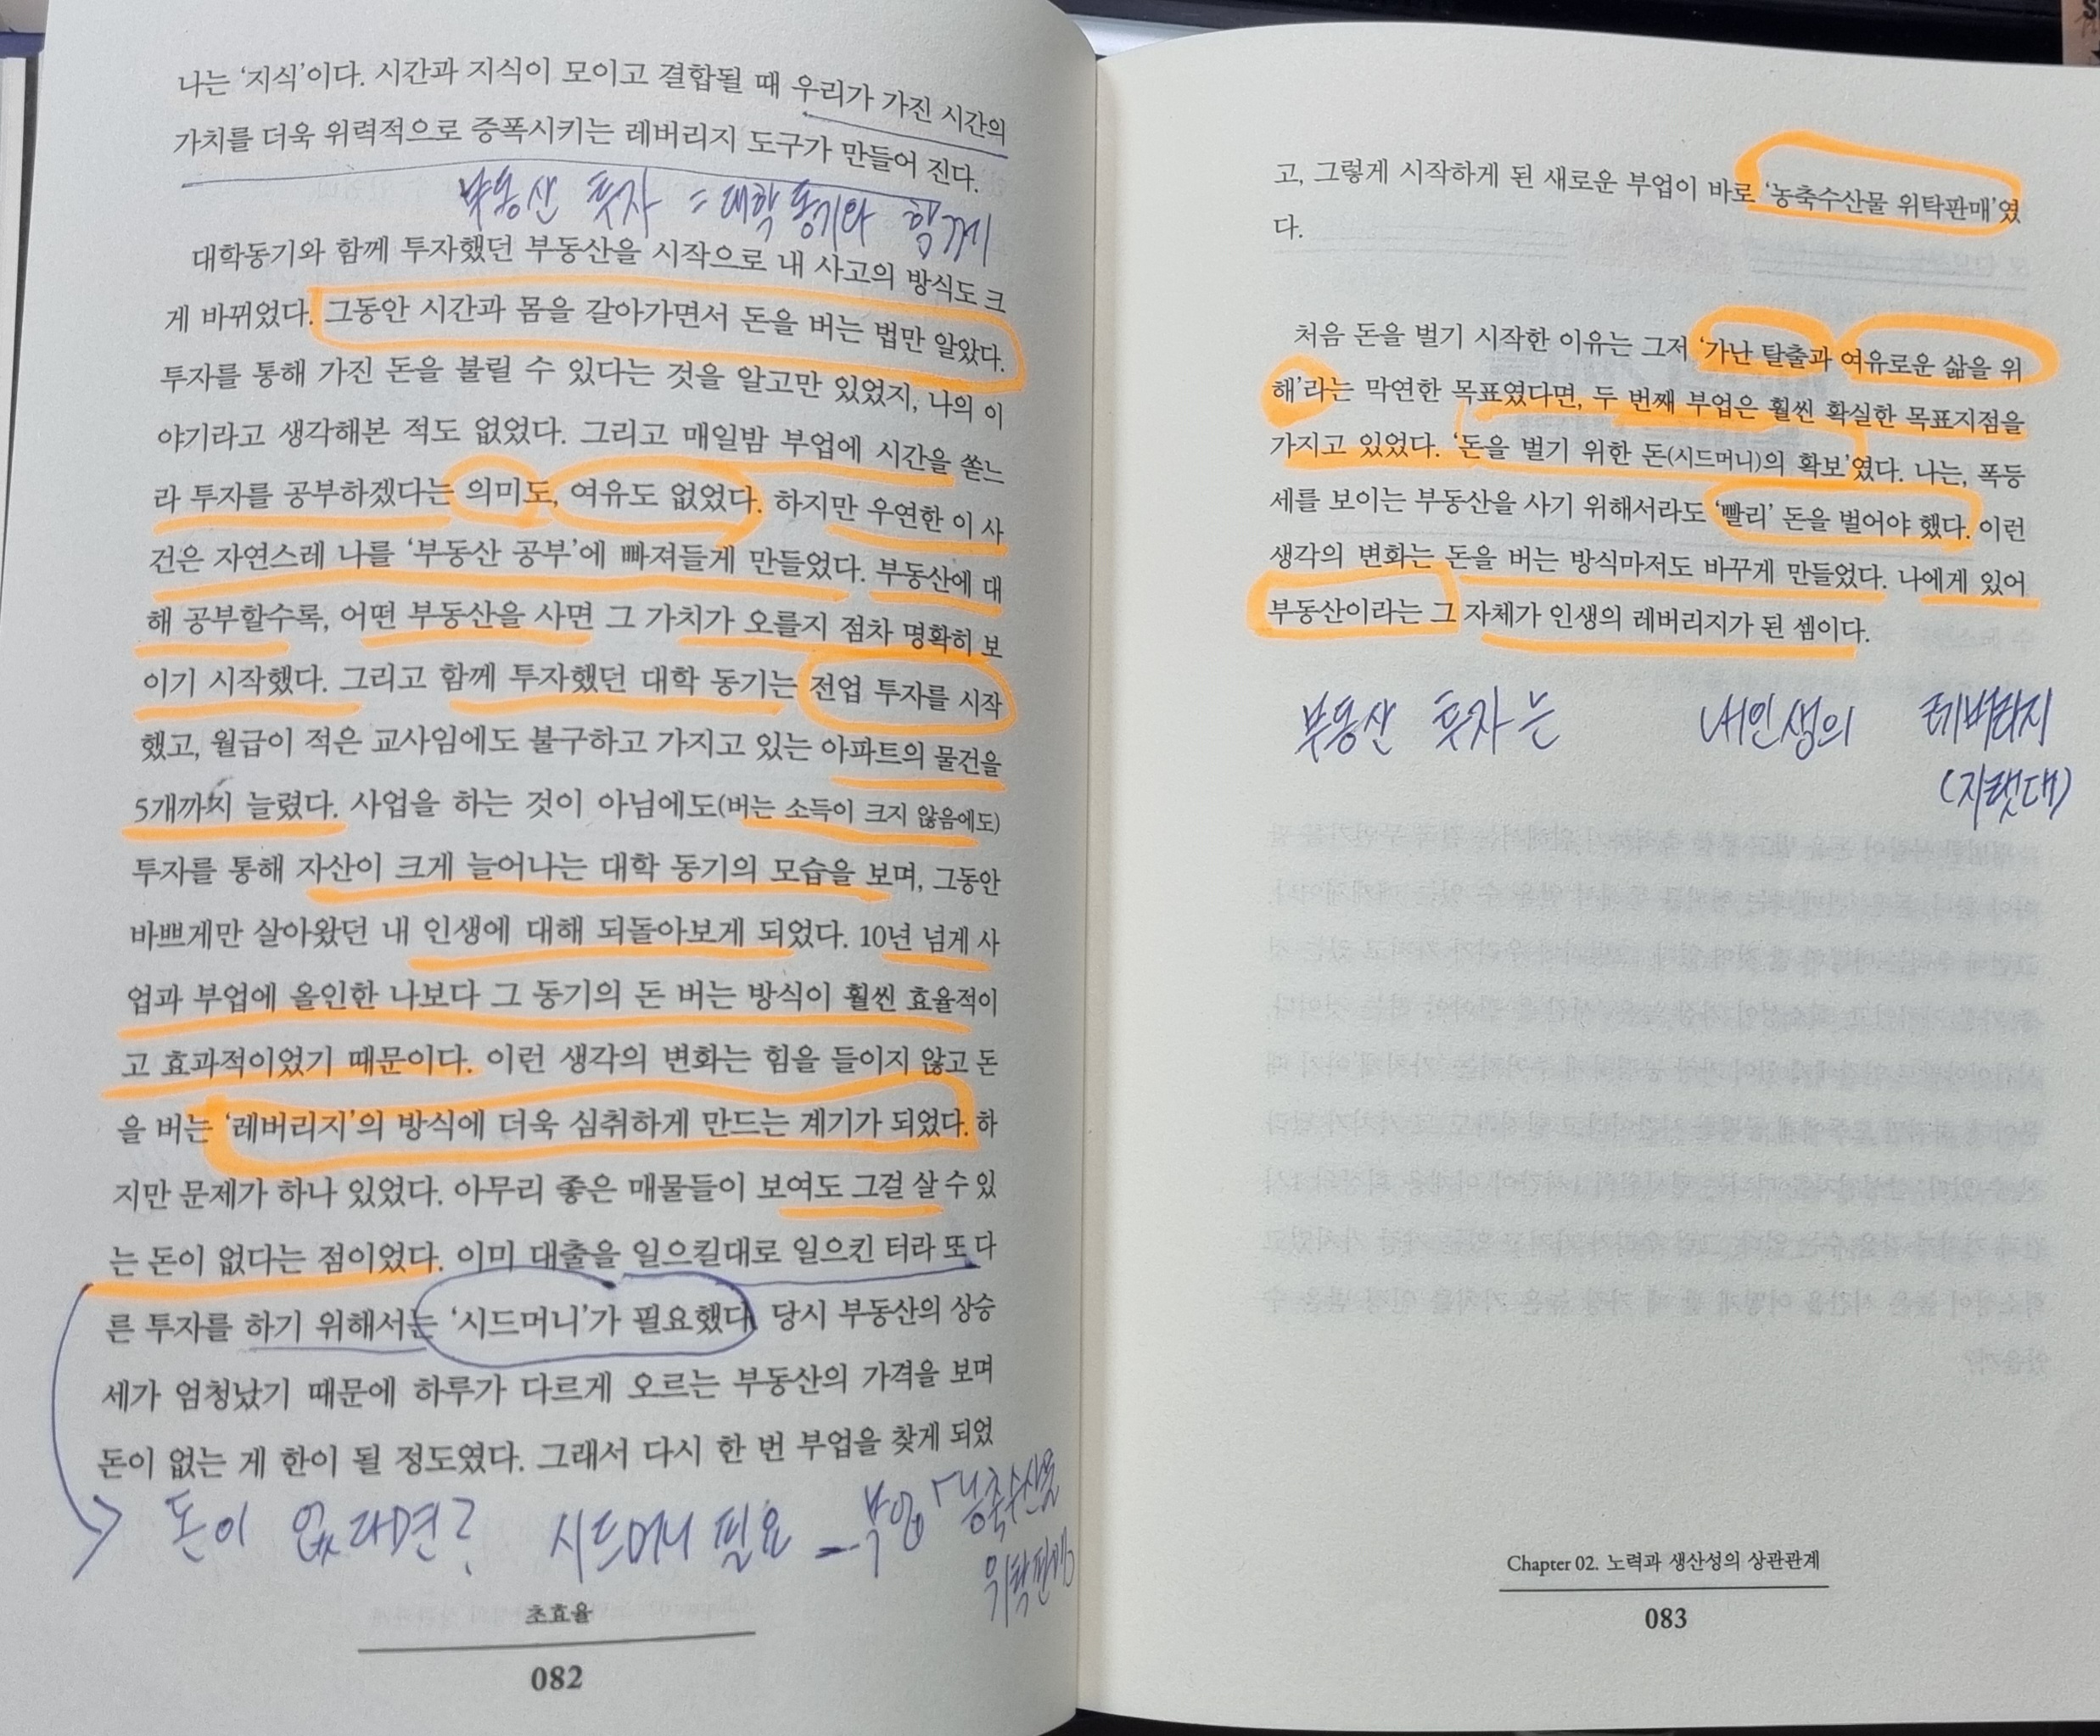 나는 ‘지식’이다. 시간과 지식이 모이고 결합될 때 우리가 가진 시간의
가치를 더욱 위력적으로 증폭시키는 레버리지 도구가 만들어 진다.
부동산 투자 = 대학 동기와 함께
대학동기와 함께 투자했던 부동산을 시작으로 내 사고의 방식도 크
게 바뀌었다. 그동안 시간과 몸을 갈아가면서 돈을 버는 법만 알았다.
투자를 통해 가진 돈을 불릴 수 있다는 것을 알고만 있었지, 나의 이
야기라고 생각해본 적도 없었다. 그리고 매일밤 부업에 시간을 쏟느
라 투자를 공부하겠다는 의미도, 여유도 없었다. 하지만 우연한 이 사
건은 자연스레 나를 ‘부동산 공부’에 빠져들게 만들었다. 부동산에 대
해 공부할수록, 어떤 부동산을 사면 그 가치가 오를지 점차 명확히 보
이기 시작했다. 그리고 함께 투자했던 대학 동기는 전업 투자를 시작
했고, 월급이 적은 교사임에도 불구하고 가지고 있는 아파트의 물건을
5개까지 늘렸다. 사업을 하는 것이 아님에도(버는 소득이 크지 않음에도)
투자를 통해 자산이 크게 늘어나는 대학 동기의 모습을 보며, 그동안
바쁘게만 살아왔던 내 인생에 대해 되돌아보게 되었다. 10년 넘게 사
업과 부업에 올인한 나보다 그 동기의 돈 버는 방식이 훨씬 효율적이
고 효과적이었기 때문이다. 이런 생각의 변화는 힘을 들이지 않고 돈
을 버는 ‘레버리지’의 방식에 더욱 심취하게 만드는 계기가 되었다. 하
지만 문제가 하나 있었다. 아무리 좋은 매물들이 보여도 그걸 살 수 있
는 돈이 없다는 점이었다. 이미 대출을 일으킬대로 일으킨 터라 또 다
른 투자를 하기 위해서는 ‘시드머니’가 필요했다. 당시 부동산의 상승
세가 엄청났기 때문에 하루가 다르게 오르는 부동산의 가격을 보며
돈이 없는 게 한이 될 정도였다. 그래서 다시 한 번 부업을 찾게 되었
돈이 없다면? 시드머니 필요 - 부업 「농축수산물
위탁판매」
초효율
082
고, 그렇게 시작하게 된 새로운 부업이 바로 ‘농축수산물 위탁판매’였
다.
처음 돈을 벌기 시작한 이유는 그저 ‘가난 탈출과 여유로운 삶을 위
해’라는 막연한 목표였다면, 두 번째 부업은 훨씬 확실한 목표지점을
가지고 있었다. ‘돈을 벌기 위한 돈(시드머니)의 확보’였다. 나는, 폭등
세를 보이는 부동산을 사기 위해서라도 ‘빨리’ 돈을 벌어야 했다. 이런
생각의 변화는 돈을 버는 방식마저도 바꾸게 만들었다. 나에게 있어
부동산이라는 그 자체가 인생의 레버리지가 된 셈이다.
부동산 투자는 내인생의 레버리지
(지렛대)
Chapter 02. 노력과 생산성의 상관관계
083